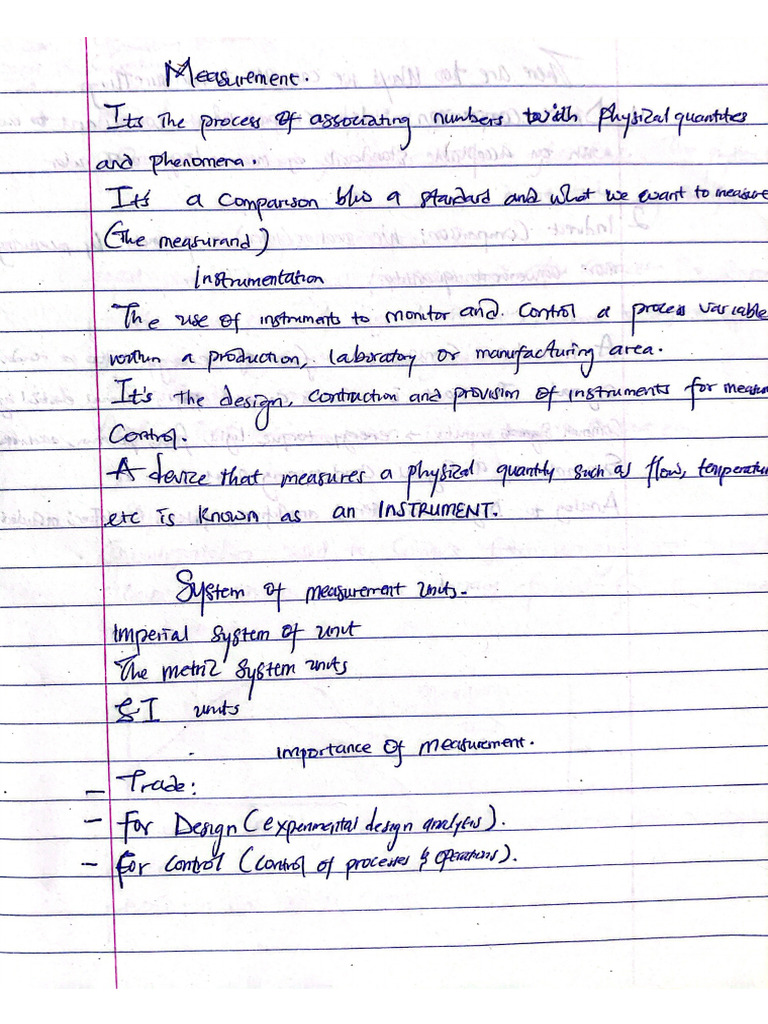 Measurement.
Its The process of associating numbers with physical quantities
and phenomera.
Its a comparison b/w a standard and what we want to measure
(The measurand)
instrumentation
The use of instruments to monitor and control a process variable
within a production, laboratory or manufacturing area.
It's the design, contruction and provision of instruments for measur
Control.
A device that measures a physical quantity such as flow, temperature
etc is known as an INSTRUMENT.
System of measurement units.
Imperial system of unit
The metric system units
S.I units
importance of measurement.
- Trade:
- For Design (experimental design analysis).
- For control (control of processes & operations).